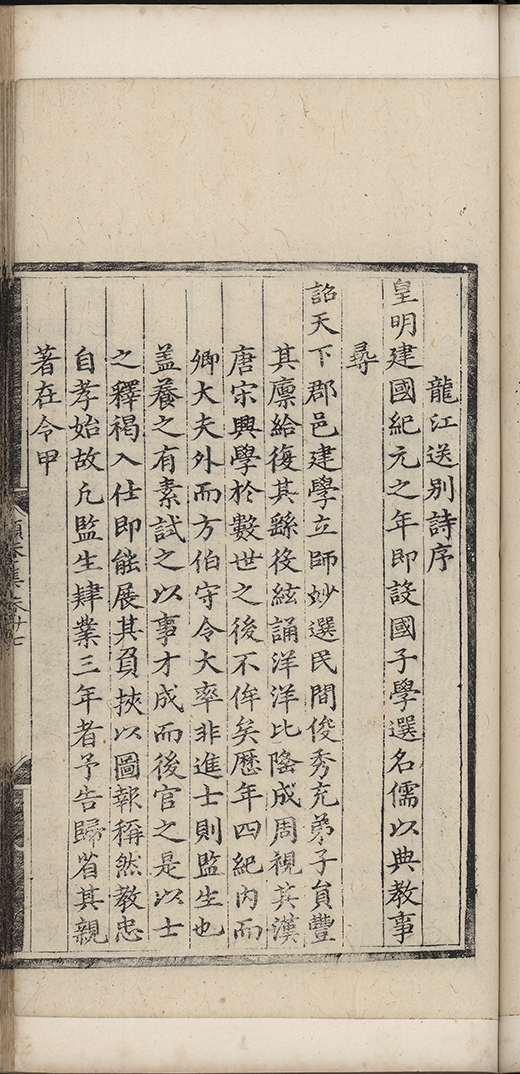 龍江送别詩序
皇明建國紀元之年即設國子學選名儒以典教事
尋
詔天下郡邑建學立師妙選民間俊秀充弟子員豐
其廪給復其繇役絃誦洋洋比隆成周視其漢
唐宋興學於數世之後不侔矣歷年四紀内而
卿大夫外而方伯守令大率非進士則監生也
盖養之有素試之以事才成而後官之是以士
之釋褐入仕即能展其負挾以圖報稱然教忠
自孝始故凢監生肄業三年者予告歸省其親
著在令甲
集 卷廿七